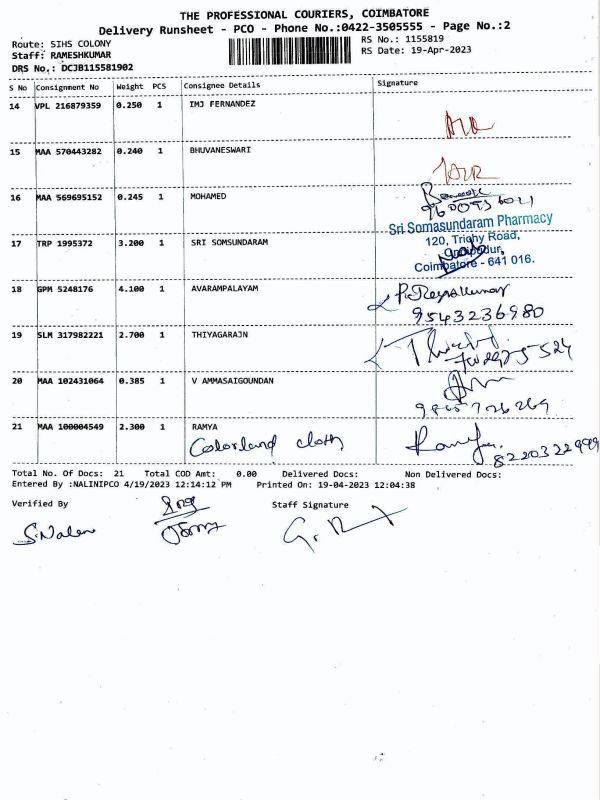 THE PROFESSIONAL COURIERS, COIMBATORE
Delivery Runsheet - PCO - Phone No.:0422-3505555 - Page No.:2
Route: SIHS COLONY
RS No.: 1155819
Staff: RAMESHKUMAR
RS Date: 19-Apr-2023
DRS No.: DCJB115581902
S No Consignment No Weight PCS Consignee Details Signature
14 VPL 216879359 0.250 1 IMJ FERNANDEZ
15 MAA 570443282 0.240 1 BHUVANESWARI
16 MAA 569695152 0.245 1 MOHAMED
Sri Somasundaram Pharmacy
17 TRP 1995372 3.200 1 SRI SOMSUNDARAM
120, Trichy Road,
Coimbatore - 641 016.
18 GPM 5248176 4.100 1 AVARAMPALAYAM
9543236980
19 SLM 317982221 2.700 1 THIYAGARAJN
20 MAA 102431064 0.385 1 V AMMASAIGOUNDAN
21 MAA 100004549 2.300 1 RAMYA
Colorland cloth
8220322999
Total No. Of Docs: 21 Total COD Amt: 0.00 Delivered Docs: Non Delivered Docs:
Entered By :NALINIPCO 4/19/2023 12:14:12 PM Printed On: 19-04-2023 12:04:38
Verified By Staff Signature